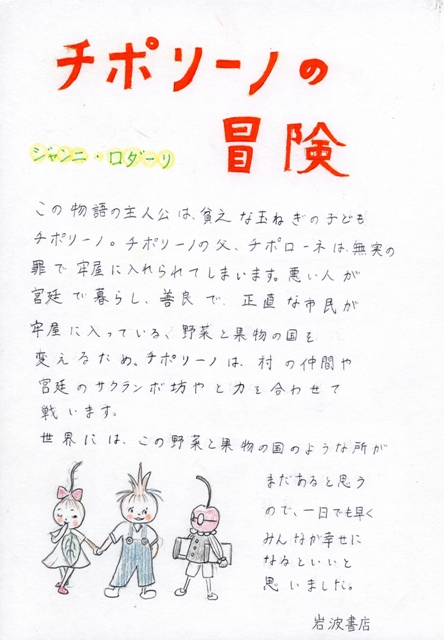 チポリーノの
冒険
ジャンニ・ロダーリ
この物語の主人公は、貧乏な玉ねぎの子ども
チポリーノ。チポリーノの父、チポローネは、無実の
罪で牢屋に入れられてしまいます。悪い人が
宮廷で暮らし、善良で、正直な市民が
牢屋に入っている、野菜と果物の国を
変えるため、チポリーノは、村の仲間や
宮廷のサクランボ坊やと力を合わせて
戦います。
世界には、この野菜と果物の国のような所が
まだあると思う
ので、一日でも早く
みんなが幸せに
なるといいと
思いました。
岩波書店